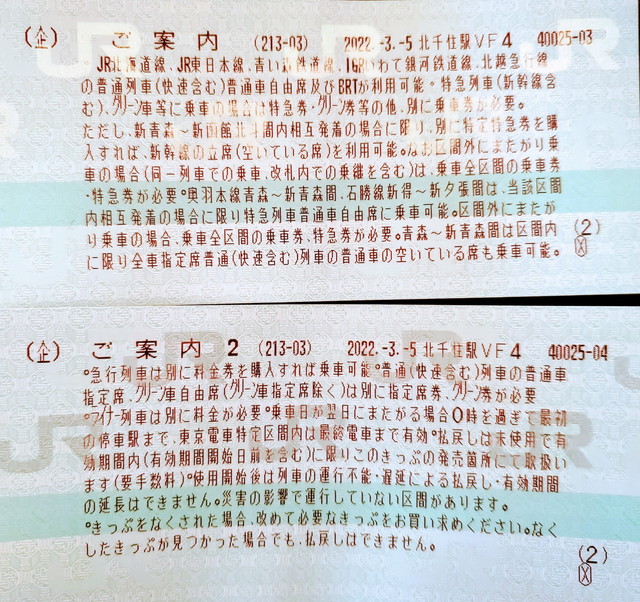 (企) ご案内 (213-03) 2022.-3.-5 北千住駅VF4 40025-03
JR北海道線、JR東日本線、青い森鉄道線、IGRいわて銀河鉄道線、北越急行線
の普通列車(快速含む)普通車自由席及びBRTが利用可能。特急列車(新幹線含
む)、グリーン車等に乗車の場合は特急券・グリーン券等の他、別に乗車券が必要。
ただし、新青森～新函館北斗間内相互発着の場合に限り、別に特定特急券を購
入すれば、新幹線の立席(空いている席)を利用可能。なお区間外にまたがり乗
車の場合(同一列車での乗車、改札内での乗継を含む)は、乗車全区間の乗車券
・特急券が必要。奥羽本線青森～新青森間、石勝線新得～新夕張間は、当該区間
内相互発着の場合に限り特急列車普通車自由席に乗車可能。区間外にまたが
り乗車の場合、乗車全区間の乗車券、特急券が必要。青森～新青森間は区間内
に限り全車指定席普通(快速含む)列車の普通車の空いている席も乗車可能。
(2)
JR
(企) ご案内 2 (213-03) 2022.-3.-5 北千住駅VF4 40025-04
°急行列車は別に料金券を購入すれば乗車可能°普通(快速含む)列車の普通車
指定席、グリーン車自由席(グリーン車指定席除く)は別に指定席券、グリーン券が必要
°ライナー列車は別に料金が必要°乗車日が翌日にまたがる場合0時を過ぎて最初
の停車駅まで、東京電車特定区間内は最終電車まで有効°払戻しは未使用で有
効期間内(有効期間開始日前を含む)に限りこのきっぷの発売箇所にて取扱い
ます(要手数料)°使用開始後は列車の運行不能・遅延による払戻し・有効期間
の延長はできません。災害の影響で運行していない区間があります。
°きっぷをなくされた場合、改めて必要なきっぷをお買い求めください。なく
したきっぷが見つかった場合でも、払戻しはできません。
(2)
JR